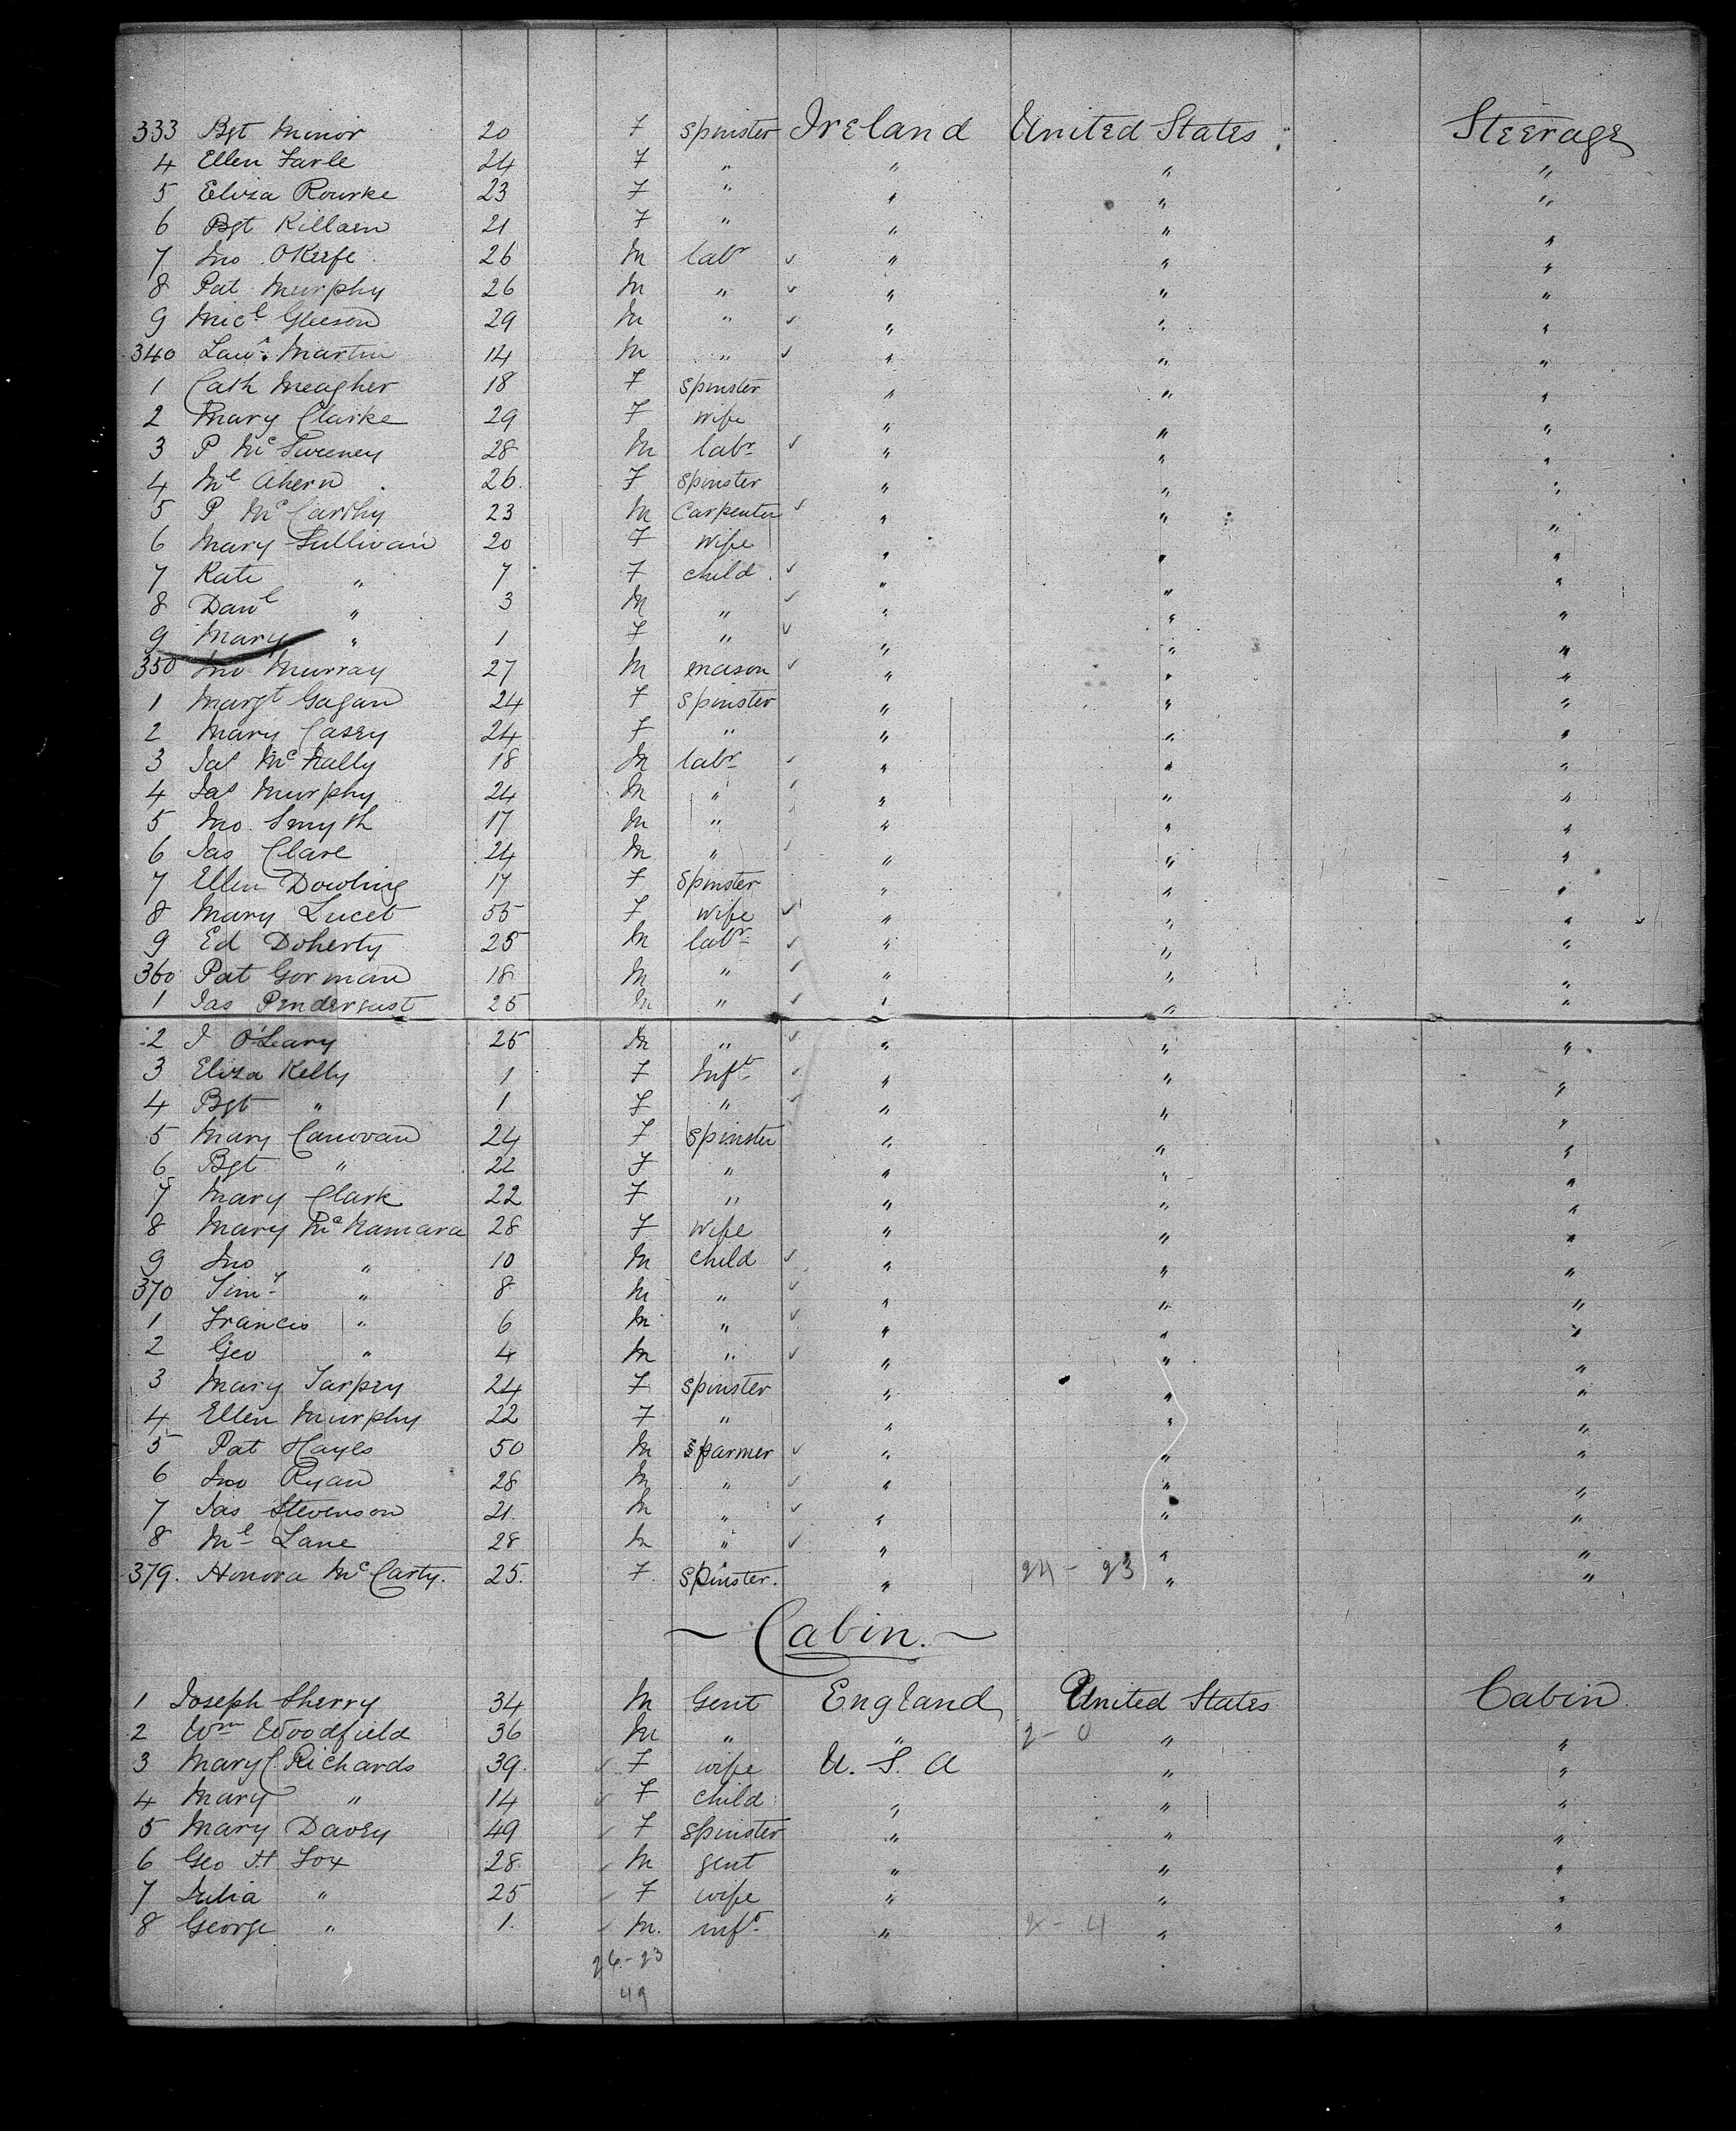 333 Bgt Minor 20 F Spinster Ireland United States Steerage
4 Ellen Farle 24 F " " " "
5 Eliza Rourke 23 F " " " "
6 Bgt Killaen 21 F " " " "
7 Jno O'Keefe 26 M labr " " "
8 Pat Murphy 26 M " " " "
9 Micl Gleeson 29 M " " " "
340 Lawe Martin 14 M " " " "
1 Cath Meagher 18 F Spinster " " "
2 Mary Clarke 29 F Wife " " "
3 P McSweeney 28 M labr " " "
4 Ml Ahern 26 F Spinster " " "
5 P McCarthy 23 M Carpenter " " "
6 Mary Sullivan 20 F Wife " " "
7 Kate " 7 F child " " "
8 Danl " 3 M " " " "
9 Mary " 1 F " " " "
350 Jno Murray 27 M mason " " "
1 Margt Gagan 24 F Spinster " " "
2 Mary Casey 24 F " " " "
3 Jas McNally 18 M labr " " "
4 Jas Murphy 24 M " " " "
5 Jno Smyth 17 M " " " "
6 Jas Clare 24 M " " " "
7 Ellen Dowling 17 F Spinster " " "
8 Mary Lucet 55 F Wife " " "
9 Ed Doherty 25 M labr " " "
360 Pat Gorman 18 M " " " "
1 Jas Pendergast 25 M " " " "
2 J O'Leary 25 M " " " "
3 Eliza Kelly 1 F Inft " " "
4 Bgt " 1 F " " " "
5 Mary Canovan 24 F Spinster " " "
6 Bgt " 22 F " " " "
7 Mary Clark 22 F " " " "
8 Mary McNamara 28 F Wife " " "
9 Jno " 10 M child " " "
370 Timy " 8 M " " " "
1 Francis " 6 M " " " "
2 Geo " 4 M " " " "
3 Mary Tarpey 24 F Spinster " " "
4 Ellen Murphy 22 F " " " "
5 Pat Hayes 50 M farmer " " "
6 Jno Ryan 28 M " " " "
7 Jas Stevenson 21 M " " " "
8 Ml Lane 28 M " " " "
379. Honora McCarty. 25. F. Spinster. " 24 - 23 " "
~ Cabin. ~
1 Joseph Sherry 34 M Gent England United States Cabin
2 Wm Woodfield 36 M " " 2 - 0 " "
3 Mary C Richards 39 F wife U. S. A " "
4 Mary " 14 F child " " "
5 Mary Davey 49 F Spinster " " "
6 Geo H Fox 28 M gent " " "
7 Julia " 25 F wife " " "
8 George " 1. M. inft " 2 - 4 " "
26-23
49